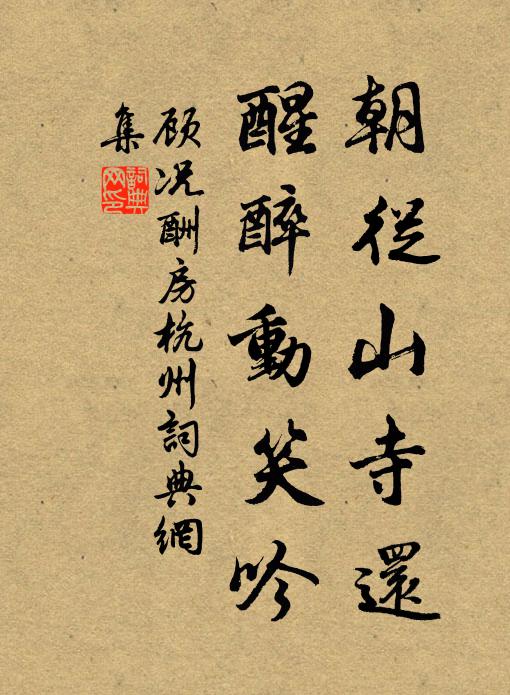 朝從山寺還
醒醉動笑吟
顾况酬房杭州詞典網
集
詞典网印